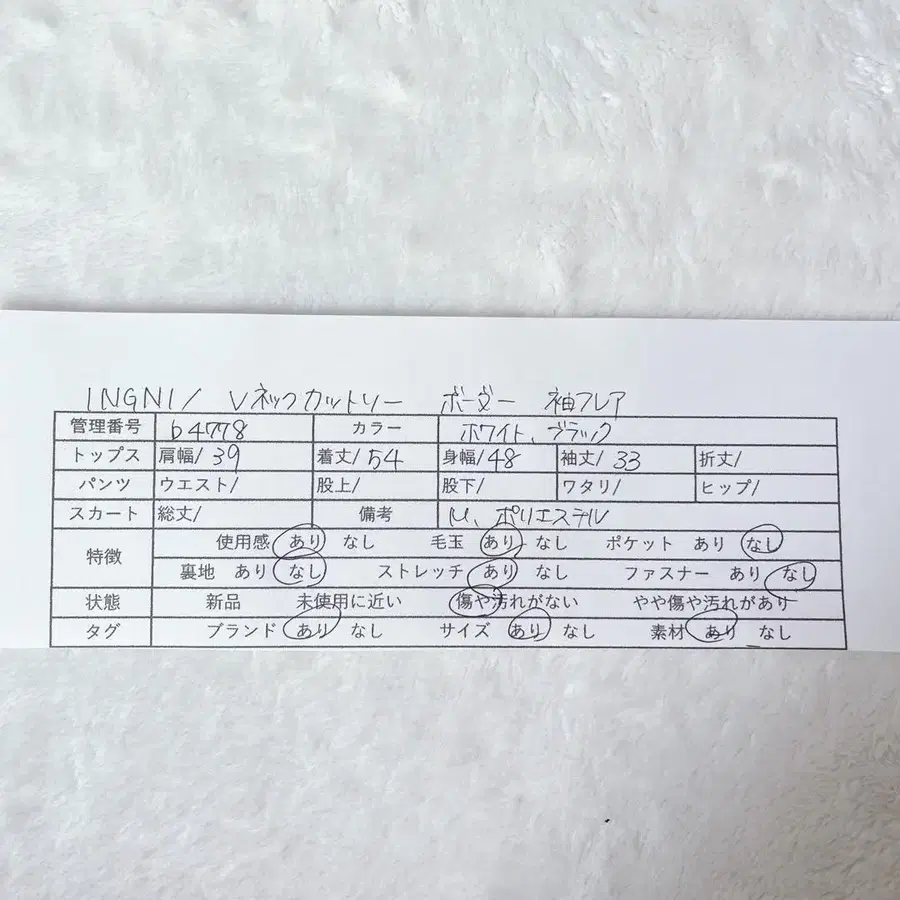 INGNI/ Vネックカットソー ボーダー 袖フレア
管理番号 b4778 カラー ホワイト、ブラック
トップス 肩幅/39 着丈/54 身幅/48 袖丈/33 折丈/
パンツ ウエスト/ 股上/ 股下/ ワタリ/ ヒップ/
スカート 総丈/ 備考 M、ポリエステル
特徴 使用感 あり なし 毛玉 あり なし ポケット あり なし
裏地 あり なし ストレッチ あり なし ファスナー あり なし
状態 新品 未使用に近い 傷や汚れがない やや傷や汚れがあり
タグ ブランド あり なし サイズ あり なし 素材 あり なし